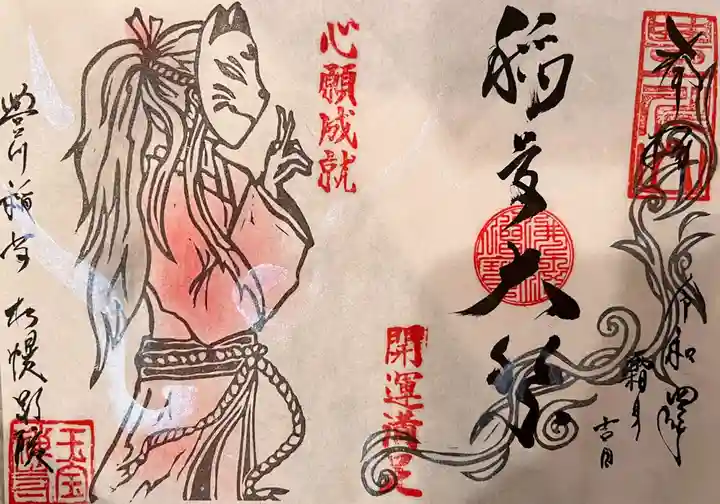 奉拝
令和四年
霜月吉日
稲荷大祭
心願成就
開運満足
豊川稲荷 札幌別院
玉宝